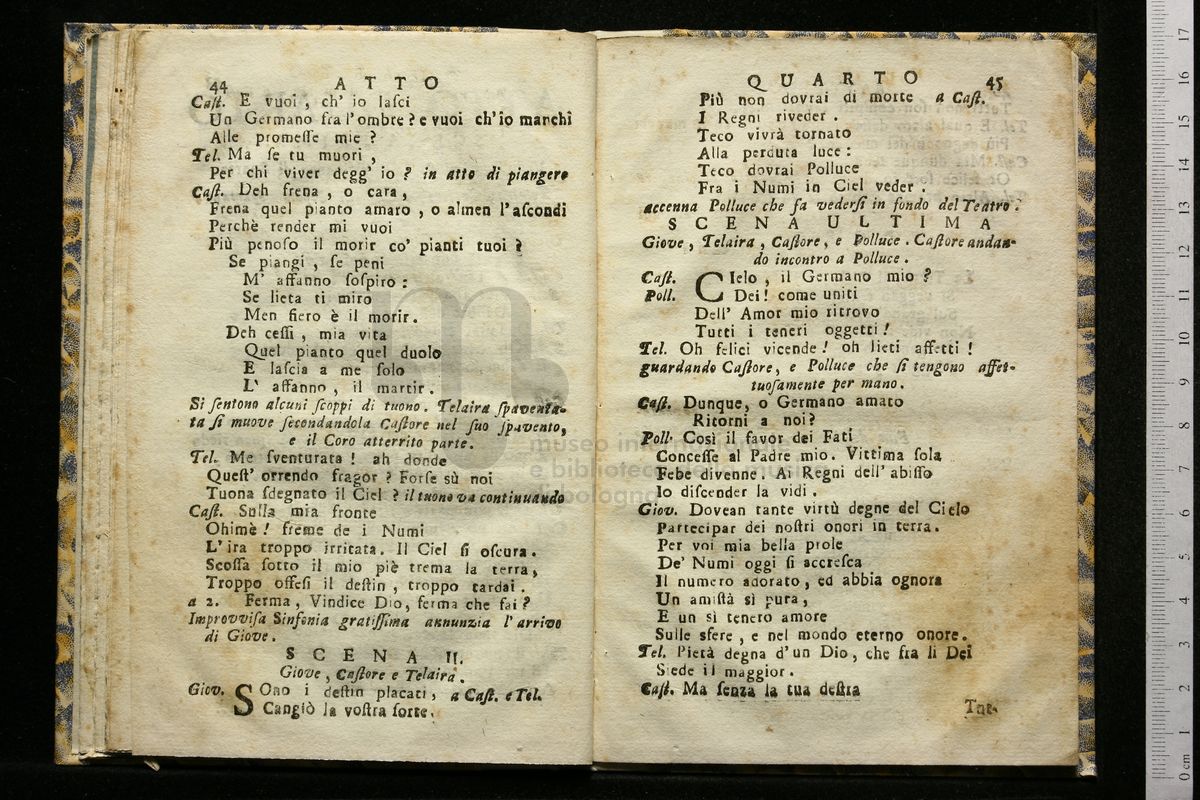 44 ATTO
Caſt. E vuoi , ch' io laſci
Un Germano fra l'ombre ? e vuoi ch'io marchî
Alle promeſſe mie ?
Tel. Ma ſe tu muori ,
Per chi viver degg' io ? in atto di piangere
Caſt. Deh frena , o cara ,
Frena quel pianto amaro , o almen l'aſcondi
Perchè render mi vuoi
Più penoſo il morir co' pianti tuoi ?
Se piangi , ſe peni
M' affanno ſoſpiro :
Se lieta ti miro
Men fiero è il morir.
Deh ceſſi , mia vita
Quel pianto quel duolo
E laſcia a me ſolo
L' affanno , il martir.
Si ſentono alcuni ſcoppi di tuono. Telaira ſpaventa-
ta ſi muove ſecondandola Caſtore nel ſuo ſpavento,
e il Coro atterrito parte.
Tel. Me ſventurata ! ah donde
Queſt' orrendo fragor ? Forſe sù noi
Tuona ſdegnato il Ciel ? il tuono va continuando
Caſt. Sulla mia fronte
Ohimè ! freme de i Numi
L' ira troppo irritata. Il Ciel ſi oſcura.
Scoſſa ſotto il mio piè trema la terra,
Troppo offeſi il deſtin , troppo tardai.
a 2. Ferma, Vindice Dio, ferma che fai?
Improvviſa Sinfonia gratiſſima annunzia l' arrivo
di Giove.
SCENA II.
Giove , Caſtore e Telaira.
Giov. SOno i deſtin placati, a Caſt. e Tel.
Cangiò la voſtra ſorte.
QUARTO 45
Più non dovrai di morte a Caſt.
I Regni riveder .
Teco vivrà tornato
Alla perduta luce :
Teco dovrai Polluce
Fra i Numi in Ciel veder .
accenna Polluce che ſa vederſi in fondo del Teatro.
SCENA ULTIMA
Giove , Telaira , Caſtore, e Polluce . Caſtore andan-
do incontro a Polluce .
Caſt. CIelo , il Germano mio ?
Poll. Dei ! come uniti
Dell' Amor mio ritrovo
Tutti i teneri oggetti !
Tel. Oh felici vicende ! oh lieti affetti !
guardando Caſtore, e Polluce che ſi tengono affet-
tuoſamente per mano.
Caſt. Dunque, o Germano amato
Ritorni a noi?
Poll. Così il favor dei Fati
Conceſſe al Padre mio. Vittima ſola
Febe divenne. Ai Regni dell' abiſſo
Io diſcender la vidi .
Giov. Dovean tante virtù degne del Cielo
Partecipar dei noſtri onori in terra.
Per voi mia bella prole
De' Numi oggi ſi accreſca
Il numero adorato, ed abbia ognora
Un amiſtà sì pura,
E un sì tenero amore
Sulle sfere , e nel mondo eterno onore.
Tel. Pietà degna d'un Dio, che fra li Dei
Siede il maggior.
Caſt. Ma ſenza la tua deſtra
museo in
e biblioteca della musica
di bologna